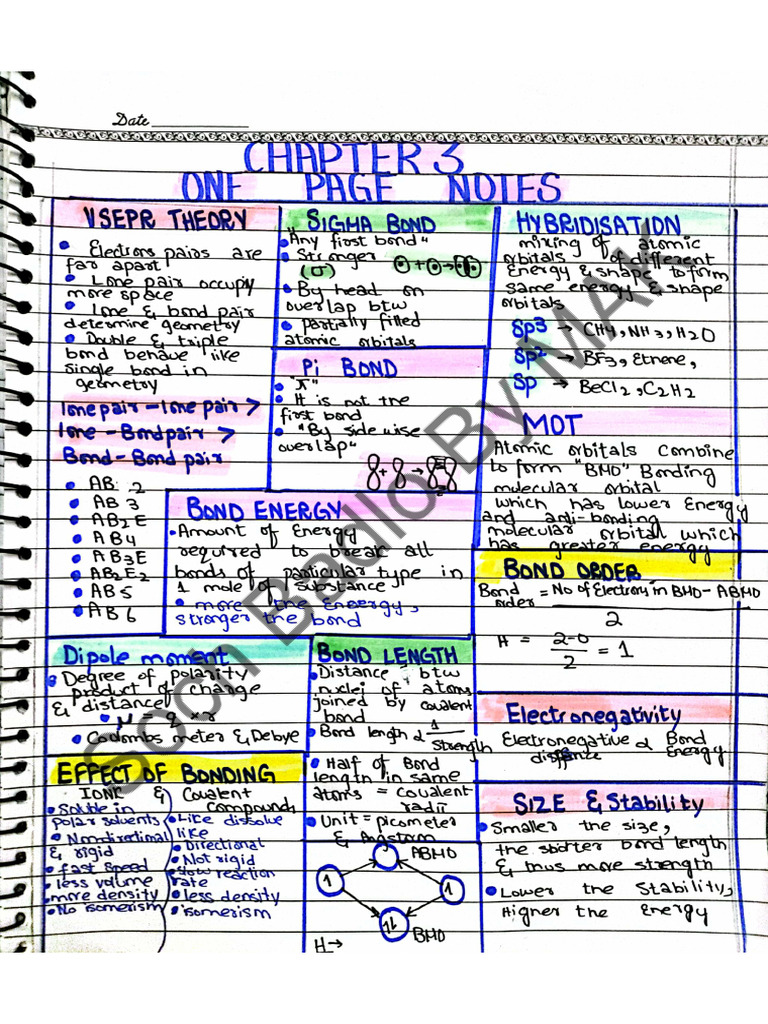 Date
CHAPTER 3
ONE PAGE NOTES
VSEPR THEORY
Electrons pairs are
far apart
Lone pair occupy
more space
Lone & bond pair
determine geometry
Double & triple
bond behave like
single bond in
geometry
lone pair - lone pair >
lone - Bond pair >
Bond - Bond pair
AB 2
AB 3
AB2E
AB4
AB3E
AB2E2
AB5
AB6
SIGMA BOND
"Any first bond"
Stronger
(σ)
By head on
overlap btw
partially filled
atomic orbitals
PI BOND
"π"
It is not the
first bond
"By side wise
overlap"
HYBRIDISATION
mixing of atomic
orbitals of different
Energy & shape to form
same energy & shape
orbitals
Sp3 → CH4, NH3, H2O
Sp2 → BF3, Ethene,
Sp → BeCl2, C2H2
MOT
Atomic orbitals combine
to form "BMO" Bonding
molecular orbital
which has lower Energy
and anti-bonding
molecular orbital which
has greater energy
BOND ENERGY
Amount of Energy
required to break all
bonds of particular type in
1 mole of substance
more the Energy,
stronger the bond
BOND ORDER
Bond order = No of Electron in BMO - ABMO
2
H = 2-0 = 1
2
Dipole moment
Degree of polarity
product of charge
& distance
μ = q × r
Coulombs meter & Debye
BOND LENGTH
Distance btw
nuclei of atoms
joined by covalent
bond
Bond length α 1
Strength
Half of Bond
length in same
atoms = covalent
radii
Unit = picometer
& Angstorm
ABMO
1 1
1↓
BMO
H→
Electronegativity
Electronegative α Bond
Energy
SIZE & Stability
Smaller the size,
the shorter bond length
& thus more strength
Lower the Stability,
Higher the Energy
EFFECT OF BONDING
IONIC & Covalent
compounds
Soluble in
polar solvents
Nondirectinal
& rigid
fast speed
less volume
more density
No isomerism
Like dissolve
like
Directional
Not rigid
Slow reaction
rate
less density
isomerism
Soch Badlo By MAK